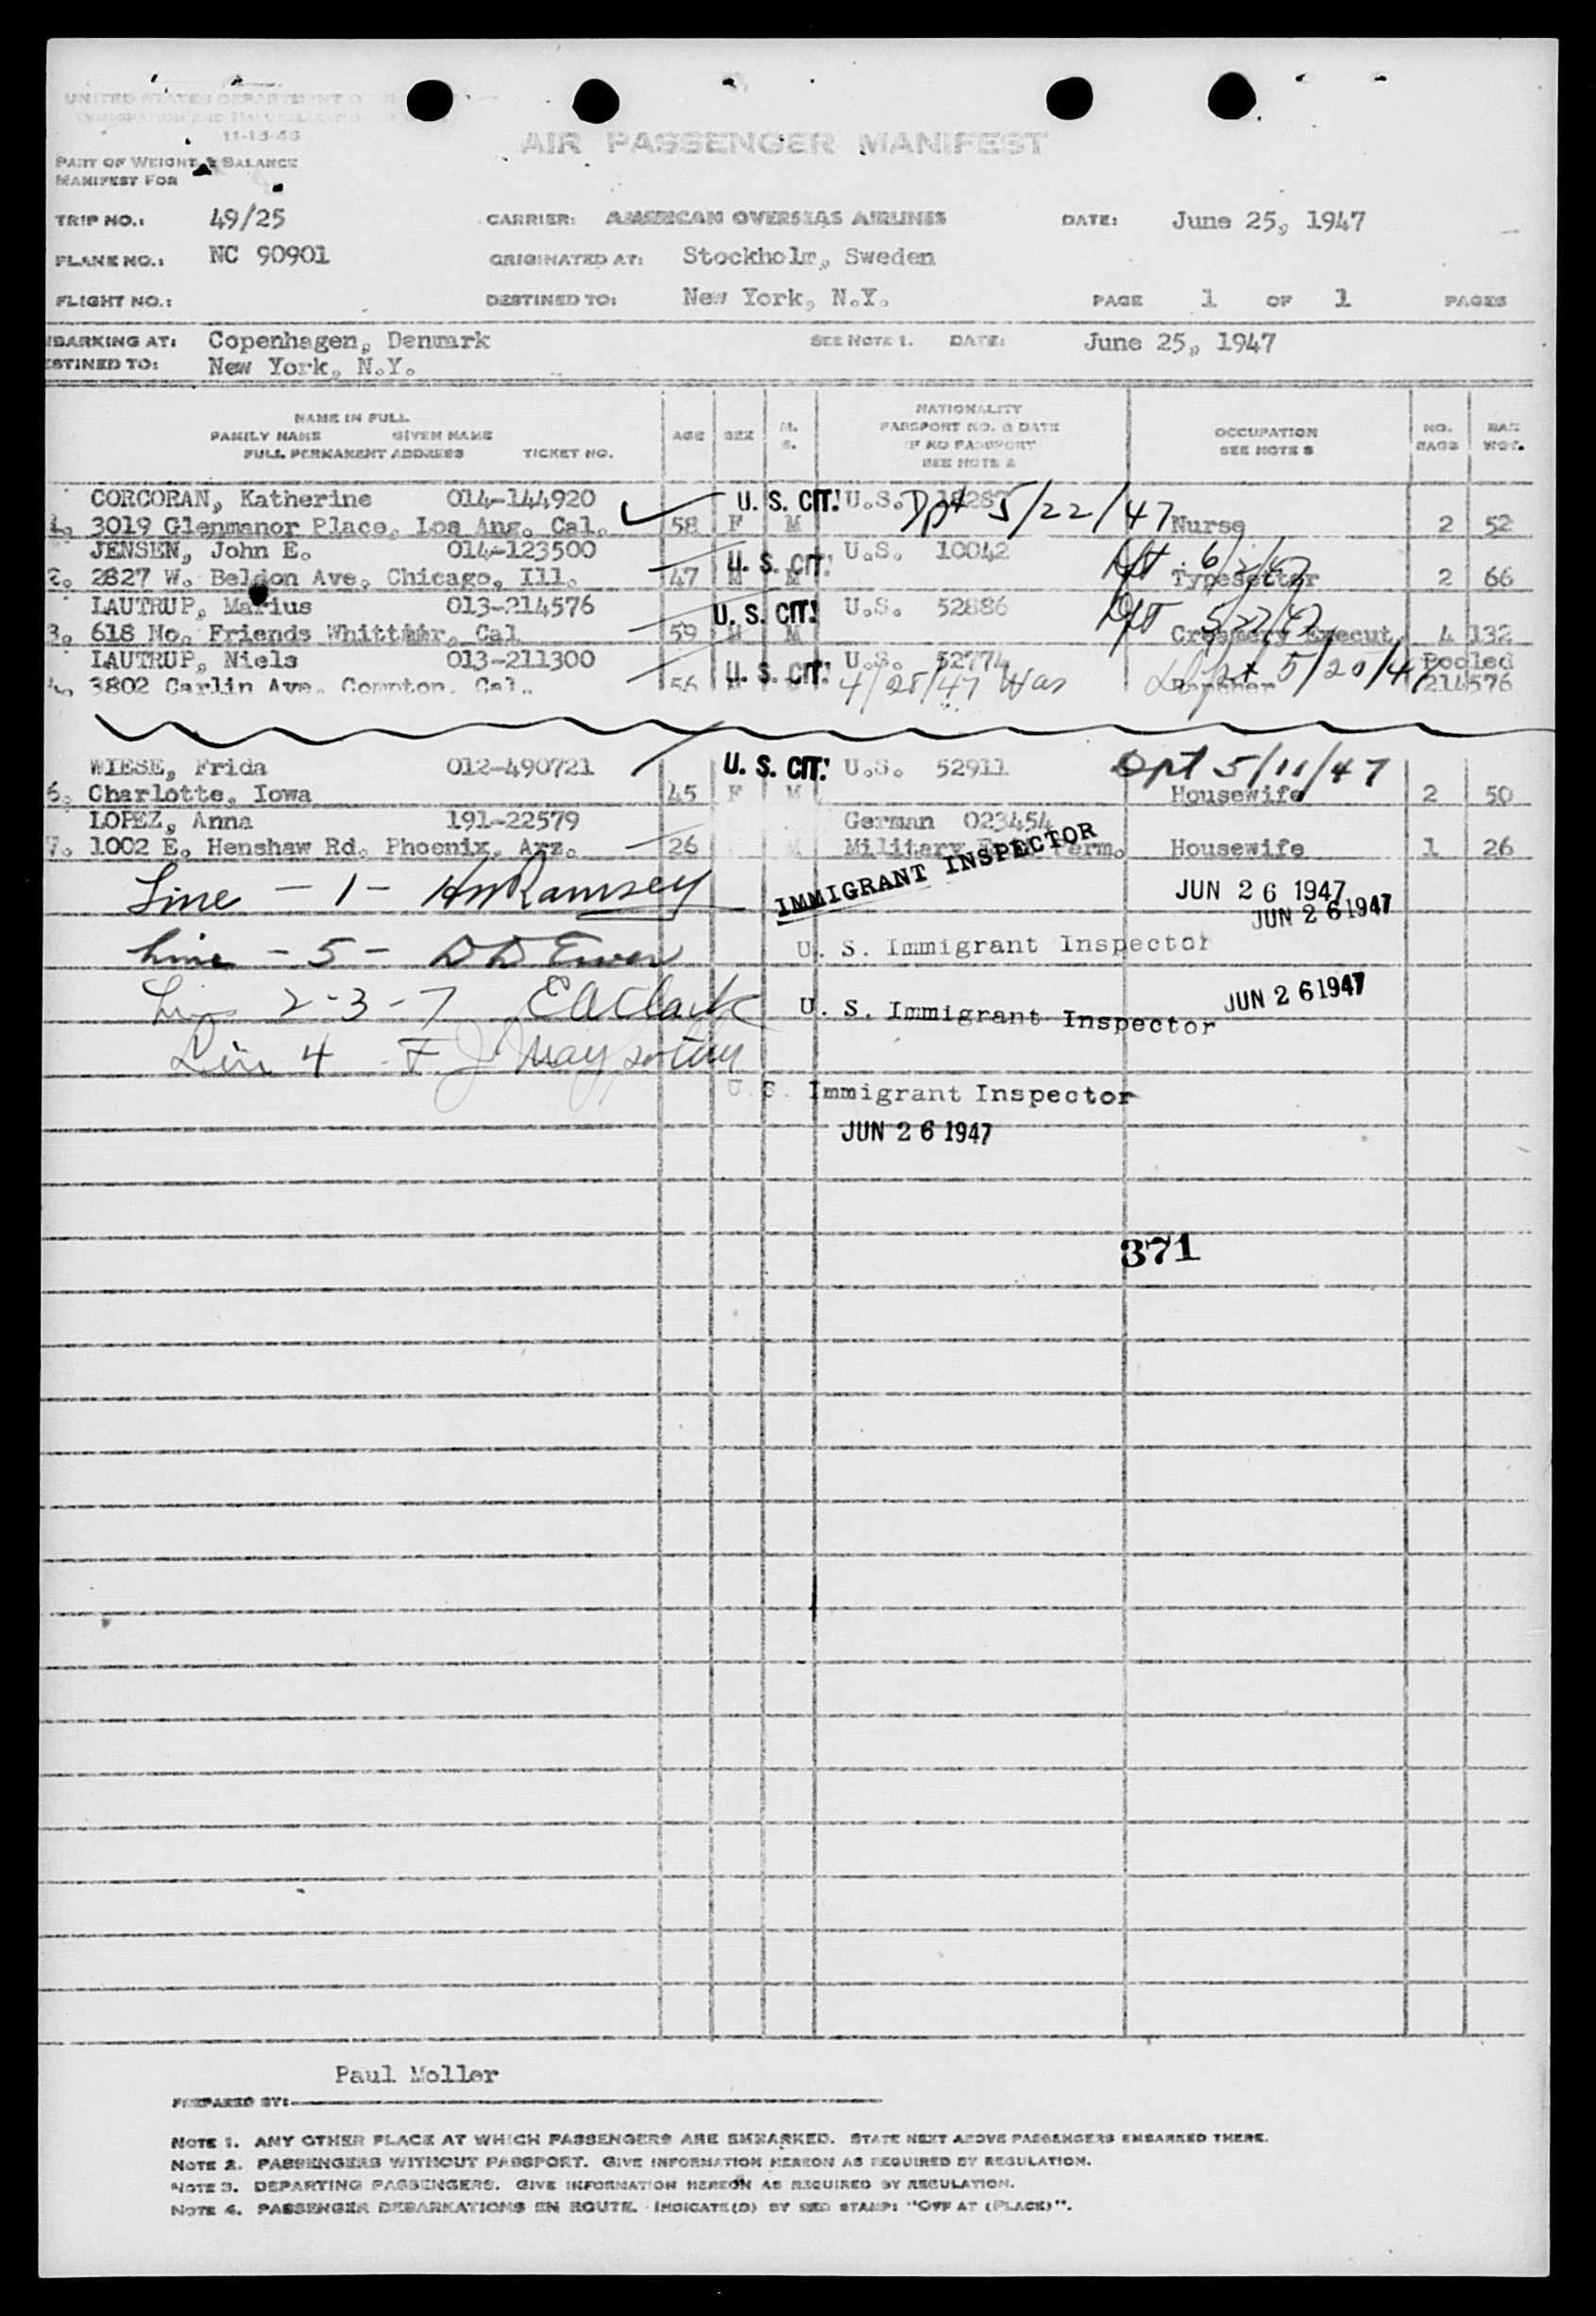 UNITED STATES DEPARTMENT OF
IMMIGRATION AND NATURALIZATION
11-15-46
AIR PASSENGER MANIFEST
PART OF WEIGHT & BALANCE
MANIFEST FOR
TRIP NO.: 49/25 CARRIER: AMERICAN OVERSEAS AIRLINES DATE: June 25, 1947
PLANE NO.: NC 90901 ORIGINATED AT: Stockholm, Sweden
FLIGHT NO.: DESTINED TO: New York, N.Y. PAGE 1 OF 1 PAGES
BARKING AT: Copenhagen, Denmark SEE NOTE 1. DATE: June 25, 1947
STINED TO: New York, N.Y.
NAME IN FULL
FAMILY NAME GIVEN NAME
FULL PERMANENT ADDRESS TICKET NO.
AGE SEX M. S.
NATIONALITY
PASSPORT NO. & DATE
IF NO PASSPORT
SEE NOTE 2
OCCUPATION
SEE NOTE 3
NO. BAGS
BAG WGT.
CORCORAN, Katherine 014-144920 U. S. CIT. U.S. Dpt 5/22/47
1. 3019 Glenmanor Place, Los Ang. Cal. 58 F M Nurse 2 52
JENSEN, John E. 014-123500 U. S. CIT. U.S. 10042
2. 2827 W. Beldon Ave. Chicago, Ill. 47 M M Typesetter 2 66
LAUTRUP, Marius 013-214576 U. S. CIT. U.S. 52886 5/27/47
3. 618 No. Friends Whittier, Cal 59 M M Creamery Execut. 4 132
LAUTRUP, Niels 013-211300 U. S. CIT. U.S. 52774 Dpt 5/20/47 Pooled
4. 3802 Carlin Ave. Compton, Cal. 56 4/28/47 214576
WIESE, Frida 012-490721 U. S. CIT. U.S. 52911 Dpt 5/11/47
6. Charlotte, Iowa 45 F M Housewife 2 50
LOPEZ, Anna 191-22579 German 023454
7. 1002 E. Henshaw Rd. Phoenix, Arz. 26 M Military Perm. Housewife 1 26
Line - 1 - HM Ramsey IMMIGRANT INSPECTOR JUN 26 1947
JUN 26 1947
Line - 5 - U. S. Immigrant Inspector
2-3-7 EA Clark U. S. Immigrant Inspector JUN 26 1947
Line 4 F J
U. S. Immigrant Inspector
JUN 26 1947
371
Paul Moller
PREPARED BY:
NOTE 1. ANY OTHER PLACE AT WHICH PASSENGERS ARE EMBARKED. STATE NEXT ABOVE PASSENGERS EMBARKED THERE.
NOTE 2. PASSENGERS WITHOUT PASSPORT. GIVE INFORMATION HEREON AS REQUIRED BY REGULATION.
NOTE 3. DEPARTING PASSENGERS. GIVE INFORMATION HEREON AS REQUIRED BY REGULATION.
NOTE 4. PASSENGER DEBARKATIONS EN ROUTE. INDICATE(D) BY RED STAMP: "OFF AT (PLACE)".